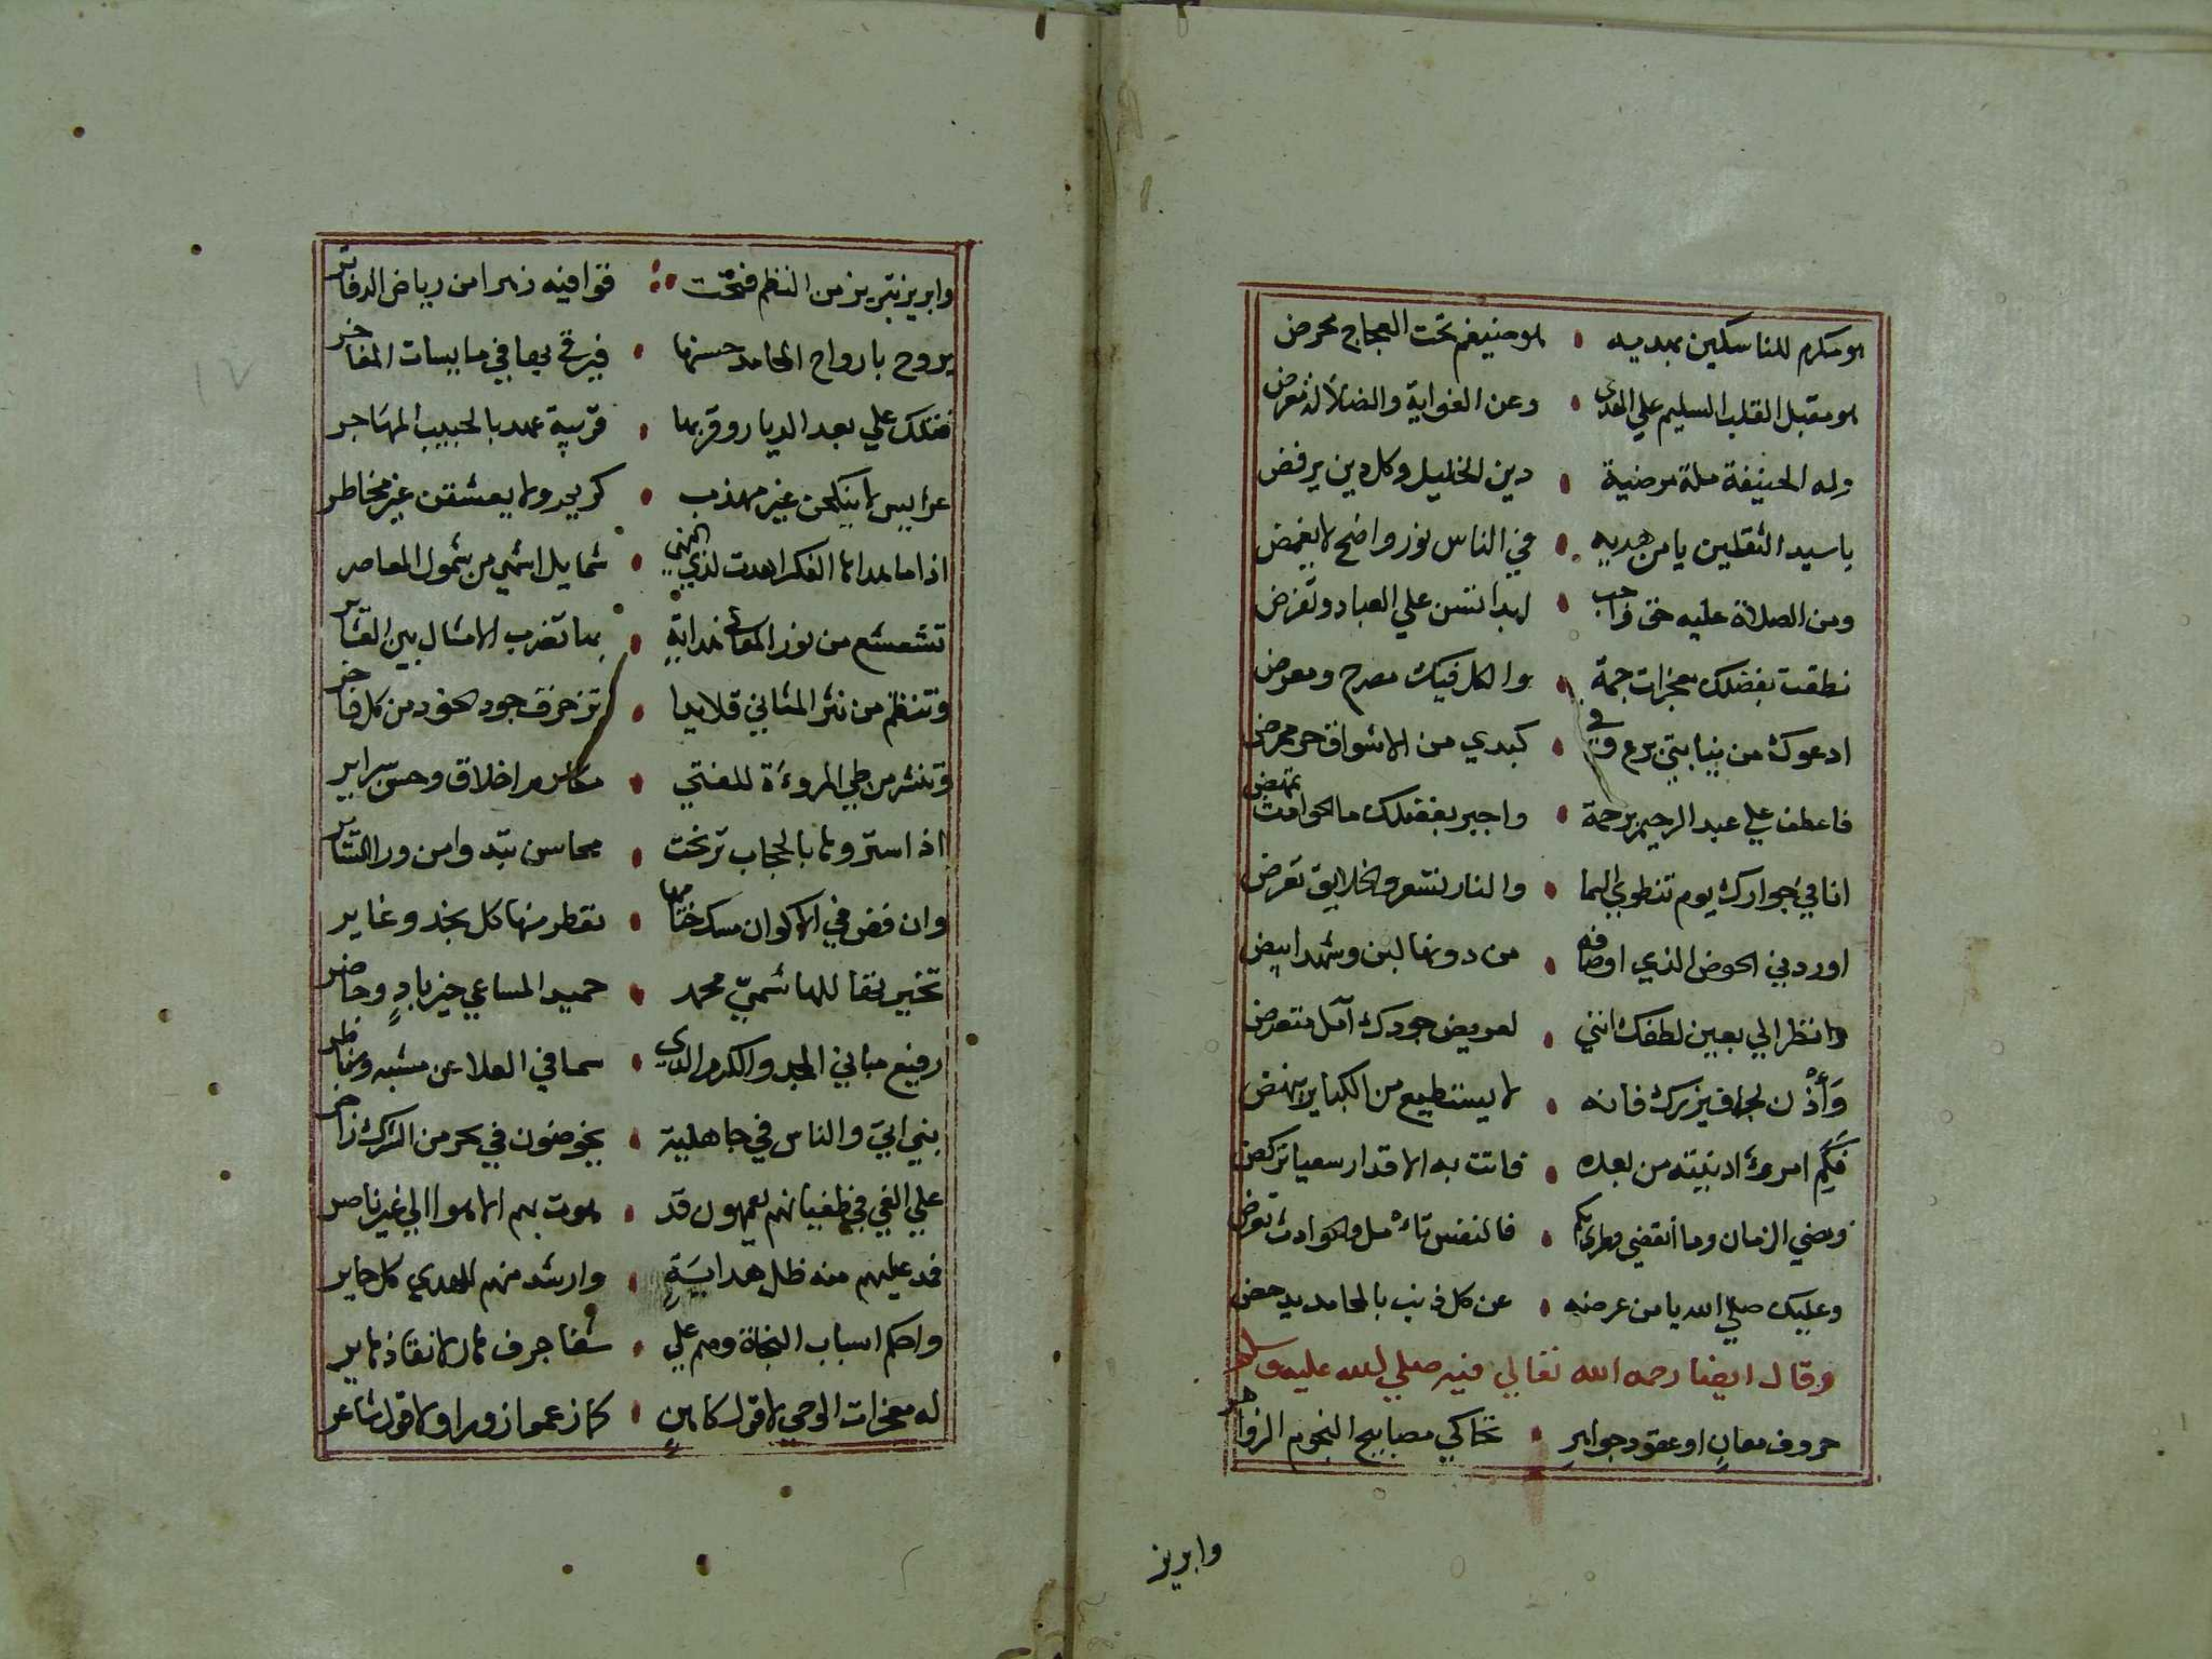 هو مكرم للناسكين بهديه • هو ضيغم تحت العجاج محرض
هو مقبل القلب السليم علي الهدي • وعن الغواية والضلالة معرض
وله الحنيفة ملة مرضية • دين الخليل وكل دين يرفض
يا سيد الثقلين يا من هديه • في الناس نور واضح لا يغمض
ومن الصلاة عليه حق واجب • ابدا تسن علي العباد وتفرض
نطقت بفضلك معجزات جمة • والكل فيك مصرح ومعرض
ادعوك من نيابتي برع وفي • كبدي من الاشواق حر ممرض
فاعطف علي عبد الرحيم برحمة • واجبر بفضلك ما الحوادث تهض
انا في جوارك يوم تنطوي السما • والنار تسعر والخلايق تعرض
اوردني الحوض الذي اوصافه • من دونها لبن وشهد ابيض
وانظر الي بعين لطفك انني • لعريض جودك آمل متعرض
وَأْذن لجاف يزرك فانه • لا يستطيع من الكباير ينهض
فكم امروء ادنيته من بعده • فاتت به الاقدار سعيا تركض
ومضي الزمان وما أنقضي وطري بكم • فالنفس تأمل والحوادث تعرض
وعليك صلي الله يا من عرضه • عن كل ذنب بالمحامد يدحض
وقال ايضا رحمه الله تعالي فيه صلي الله عليه وسلم
حروف معانٍ او عقود جواهرِ • تحاكي مصابيح النجوم الزواهر
وابريز
وابريز تبريز من النظم فتحت • قوافيه زهرا من رياض الدفاتر
يروح بارواح المحامد حسنها • فيرقي بها في ساميات المفاخر
فضلك علي بعد الديار وقربها • قريبة عهد بالحبيب المهاجر
عرايس لا ينكحن غير مهذب • كريم ولا يعشقن غير مخاطر
اذا ما لها الفكر اهدت لذي النهي • شمايل اشهي من شمول المعاصر
تشعشع من نور المعاني هداية • بها تضرب الامثال بين العشاير
وتنظم من نثر المثاني قلايدا • تزخرف جود الخود من كل فاخر
وتنشر من طي المروءة للفتي • مكارم اخلاق وحسن سراير
اذا ستروها بالحجاب ترخت • محاسن تبدوا من ورا الستاير
وان فض في الاكوان مسك ختامها • تعطر منها كل نجد وغاير
تخيرتها للهاشميّ محمد • حميد المساعي خير بادٍ وحاضر
رفيع مباني المجد والكرم الذي • سما في العلا عن مشبه ومناظر
نبي اتي والناس في جاهلية • يخوضون في بحر من الشرك زاخر
علي الغي في طغيانهم يعمهون قد • هوت بهم الاهوا الي غير ناصر
فمد عليهم منه ظل هدايةٍ • وارشد منهم للهدي كل حاير
واحكم اسباب النجاة وهم علي • شفا جرف هار لانقاذ هاير
له معجزات الوحي لا قول كاهنٍ • كما زعموا زورا ولا قول شاعر
١٧